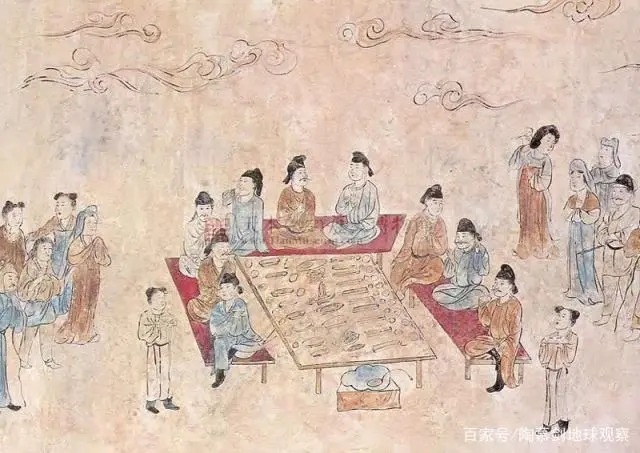 百家号/陶慕剑地球观察